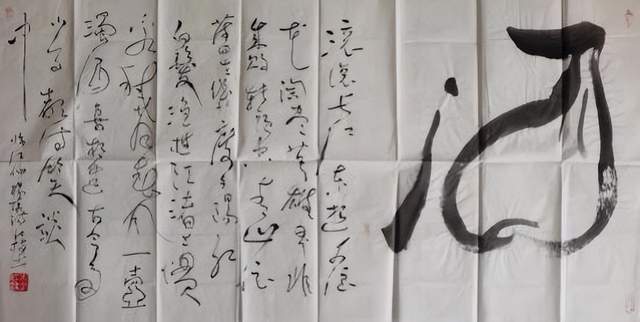 滚滚长江东逝水浪
花淘尽英雄是非
成败转头空青山依
旧在几度夕阳红
白发渔樵江渚上惯
看秋月春风一壶
浊酒喜相逢古今多
少事都付笑谈
中
临江仙